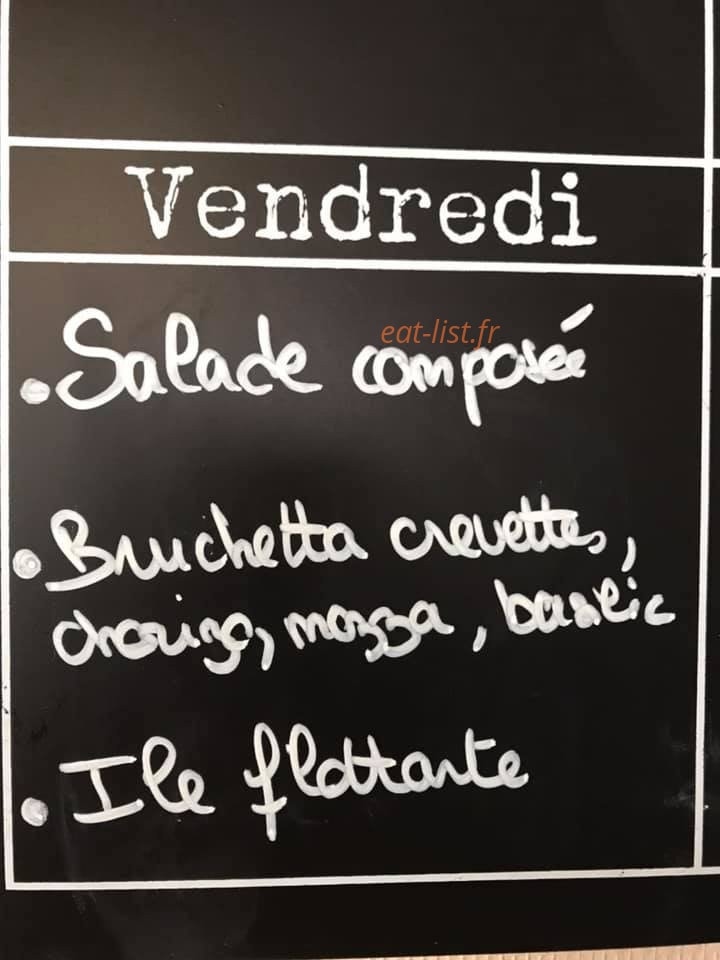 Vendredi
eat-list.fr
• Salade composée
• Bruchetta crevettes,
chorizo, mozza, basilic
• Ile flottante